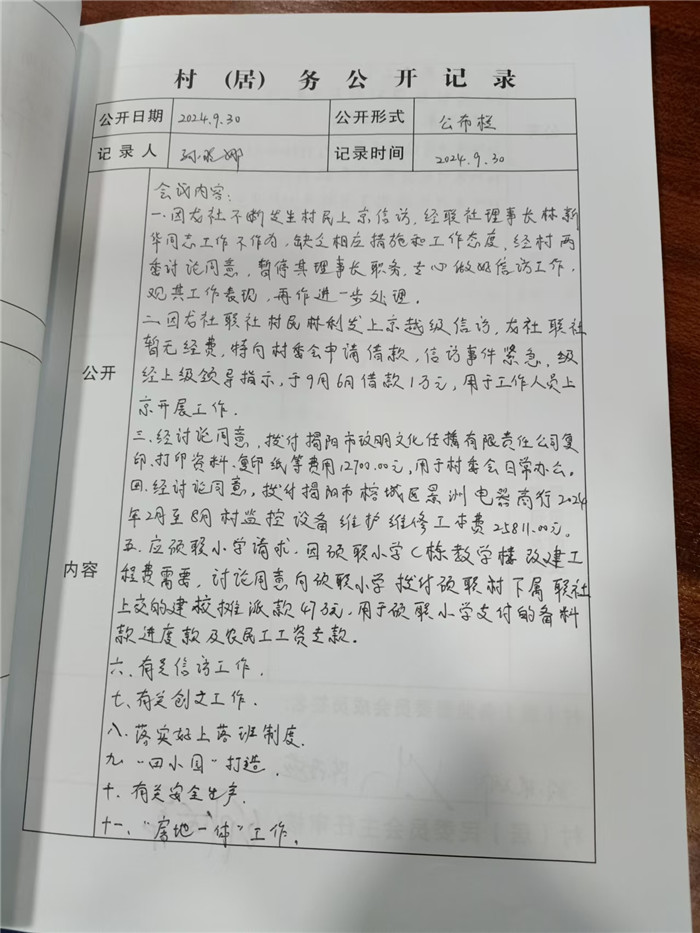 村 (居) 务 公 开 记 录
公开日期 2024.9.30 公开形式 公布栏
记 录 人 孙 娜 记录时间 2024.9.30
会议内容:
一.因龙社不断发生村民上京信访,经联社理事长林新
华同志工作不作为,缺乏相应措施和工作态度,经村两
委讨论同意,暂停其理事长职务,专心做好信访工作,
观其工作表现,再作进一步处理.
二.因龙社联社村民林利发上京越级信访,龙社联社
暂无经费,特向村委会申请借款,信访事件紧急,级
公开 经上级领导指示,于9月6日借款1万元,用于工作人员上
京开展工作.
三.经讨论同意,拨付揭阳市玟明文化传播有限责任公司复
印、打印资料、复印纸等费用12700.00元,用于村委会日常办公。
四.经讨论同意,拨付揭阳市榕城区景洲电器商行2024
年2月至8月村监控设备维护维修工本费25811.00元。
五.应硕联小学请求,因硕联小学C栋教学楼改建工
内容 程费需要,讨论同意向硕联小学拨付硕联村下属联社
上交的建校摊派款47万元,用于硕联小学支付的备料
款进度款及农民工工资专款.
六.有关信访工作.
七.有关创文工作.
八.落实好上落班制度.
九."四小园"打造.
十.有关安全生产.
十一."房地一体"工作.